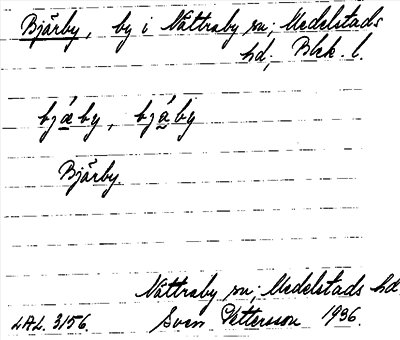 Bjärby, by i Nättraby sn; Medelstads
hd, Blek. l.
bjá̱by, bjá̱by
Bjärby.
Nättraby sn; Medelstads hd
LAL. 3156. Sven Pettersson 1936.